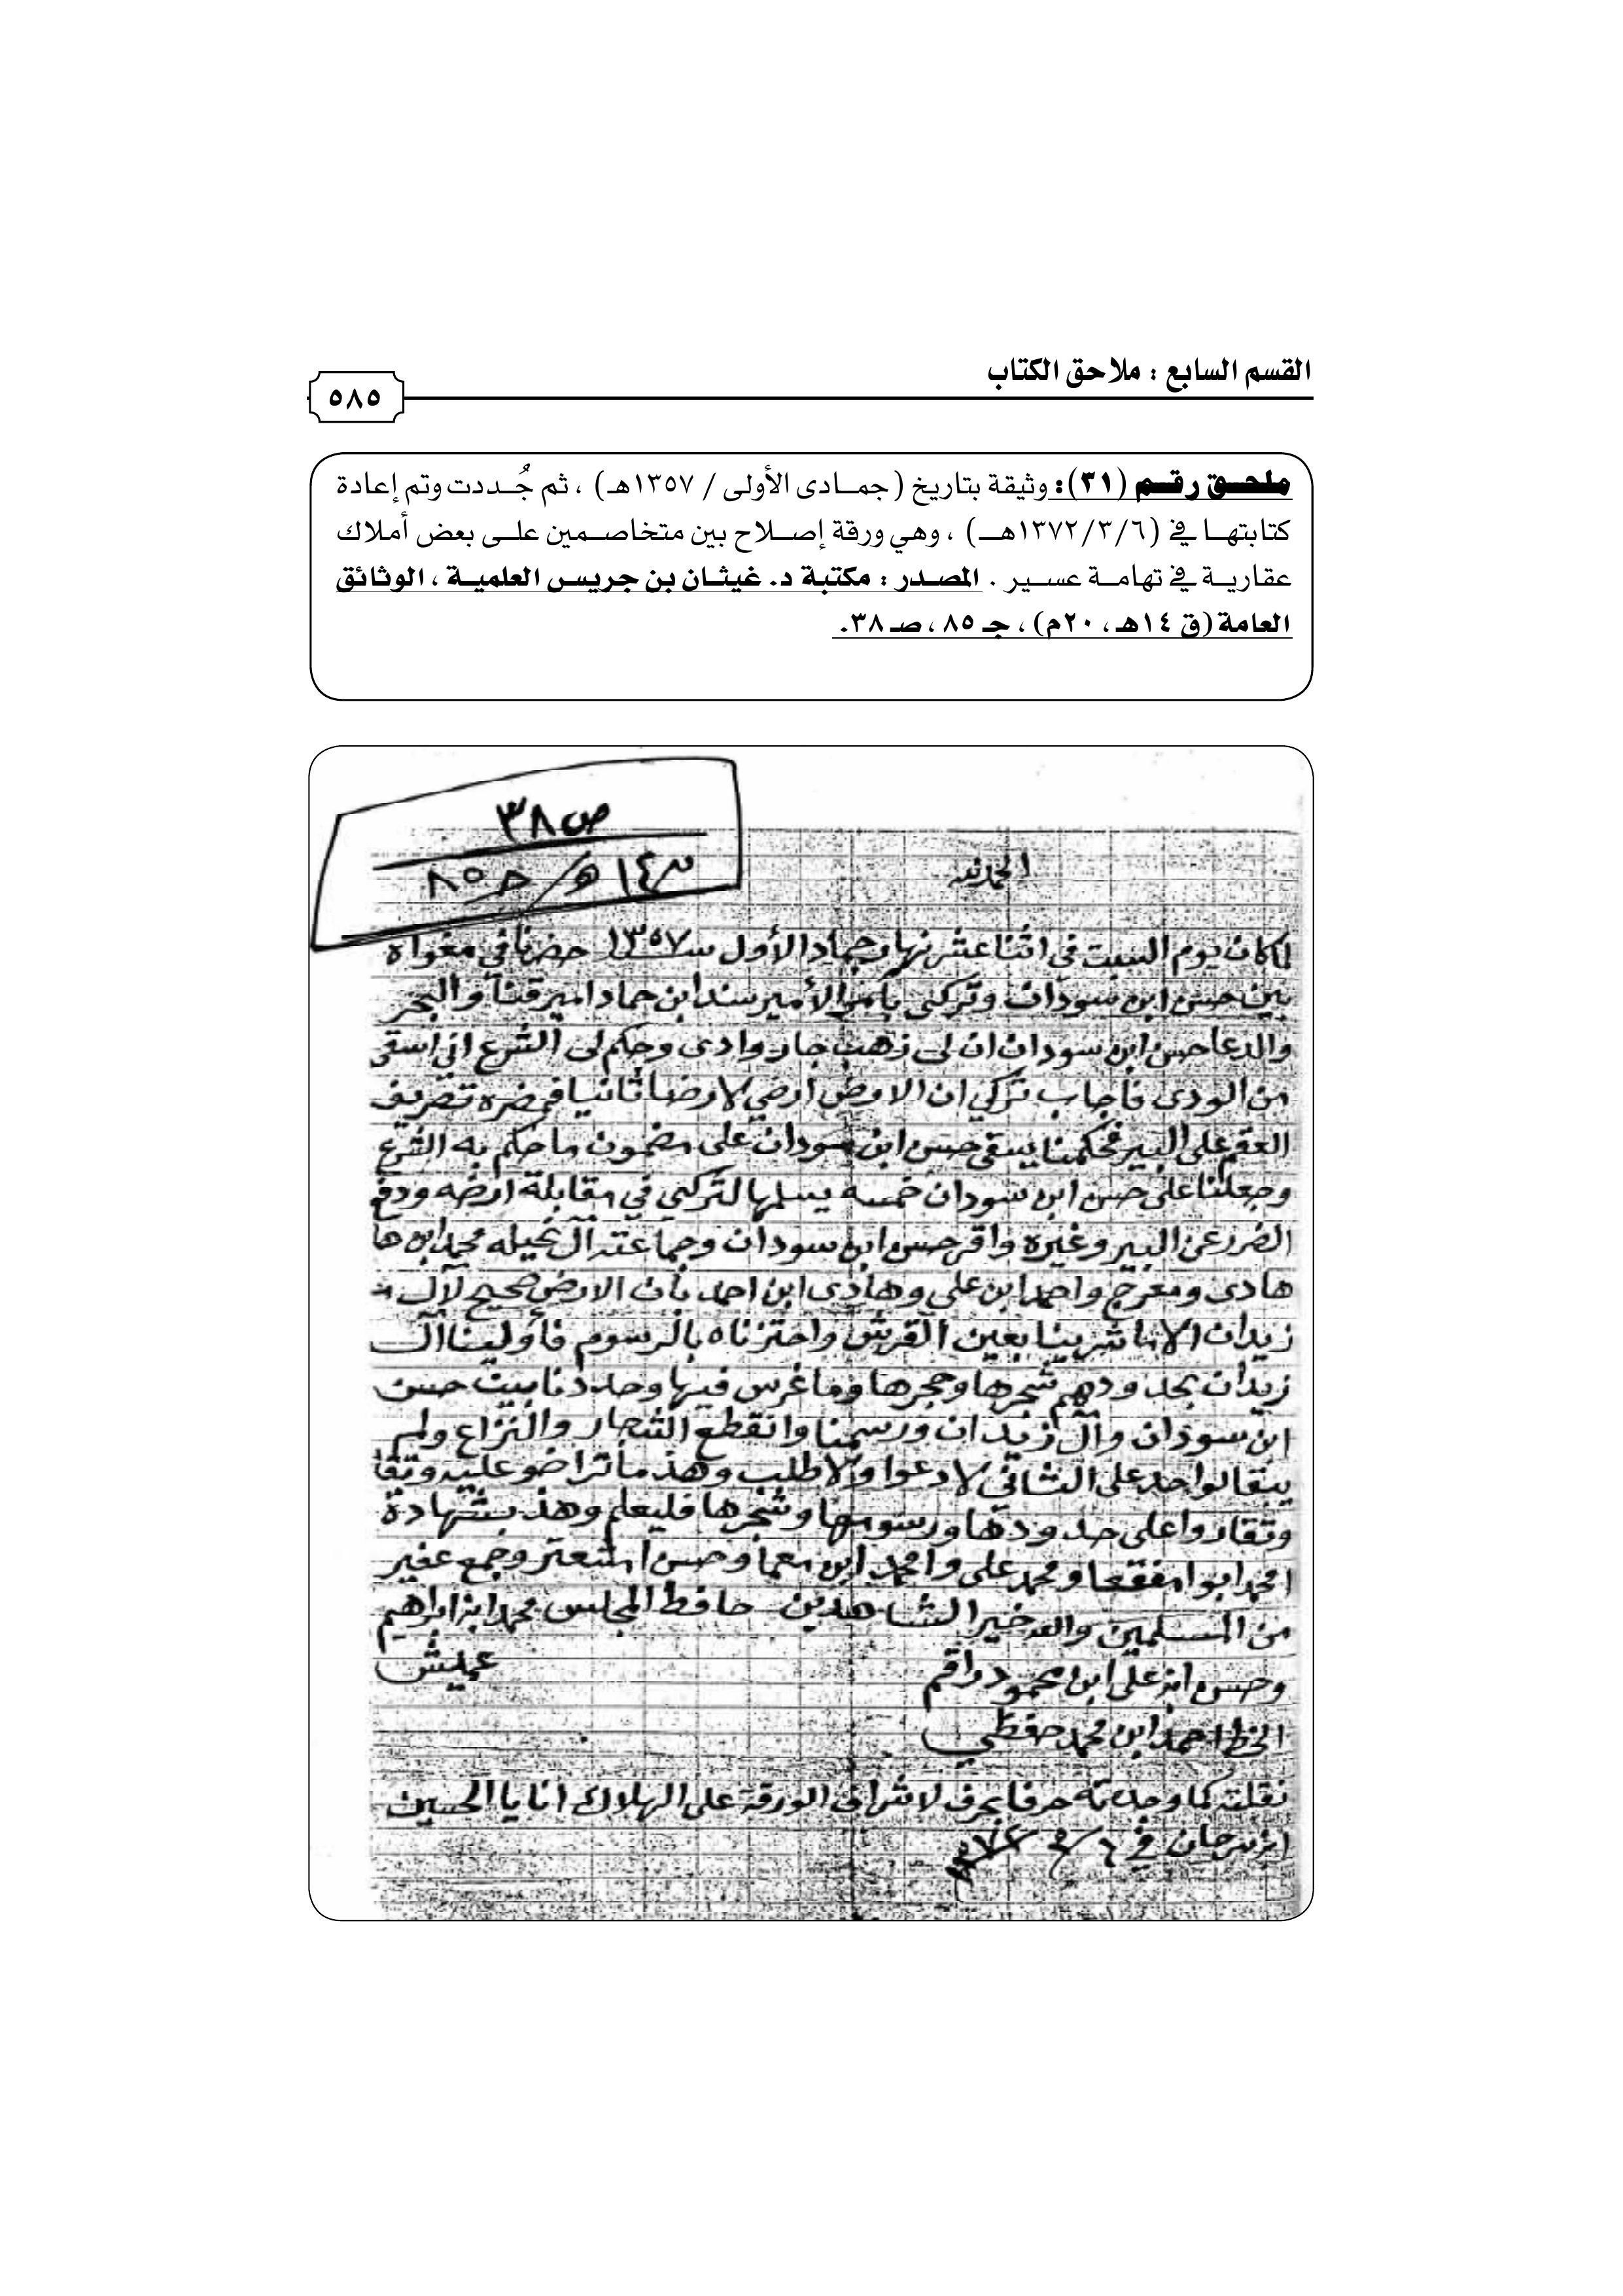 القسم السابع : ملاحق الكتاب
٥٨٥
ملحق رقم (٣١): وثيقة بتاريخ (جمادى الأولى / ١٣٥٧هـ) ، ثم جُددت وتم إعادة
كتابتها في (١٣٧٢/٣/٦هـ) ، وهي ورقة إصلاح بين متخاصمين على بعض أملاك
عقارية في تهامة عسير . المصدر : مكتبة د. غيثان بن جريس العلمية ، الوثائق
العامة (ق ١٤هـ ، ٢٠م) ، جـ ٨٥ ، صـ ٣٨.
ص ٣٨
١٤ هـ / ٨٥
الحمد لله
لما كان يوم السبت في اثنا عشر نهار جماد الأول سنة ١٣٥٧ حضرنا في مغواه
بين حسن ابن سودان وتركي بأمر الأمير سند ابن حماد امير قنا والبحر
والدعا حسن ابن سودان ان لي زهب جار وادى وحكم لي الشرع اني اسقي
من الودى فاجاب تركي ان الارض ارضي لارضا ثانيا تصريف
العقم على البير فحكمنا يسقي حسن ابن سودان على مضمون ما حكم به الشرع
وجعلنا على حسن ابن سودان خمسه يسلمها لتركي في مقابلة ارضه ودفع
الضرر عن البير وغيره واقر حسن ابن سودان وجماعته آل محمد ابن ها
هادى ومفرح واحمد ابن علي وهادى ابن احمد بأن الارض صحيح لآل
زيدان الا انا شرينا بعين القرش واحتزناه بالرسوم فأولينا آل
زيدان بحدودهم شجرها وحجرها وما غرس فيها وحددنا بيت حسن
ابن سودان وآل زيدان ورسمنا وانقطع الشجار والنزاع ولم
يبقا لواحد على الثاني لا دعوا ولا طلب وهذ ما تراضو عليه وتقا
وتقارروا على حدودها ورسومها وشجرها فليعلم وهذ بشهادة
ومحمد علي واحمد ابن وحسن وجمع غفير
من المسلمين والله خير الشاهدين حافظ المجلس محمد ابن ابراهيم
وحسن ابن علي ابن محمود راقم
الخط احمد ابن محمد حفظي
نقلته كما وجدته حرفا بحرف الورقة على الهلاك انا يا الحسين
ابن سرحان في ٦ / ٣ / ١٣٧٢